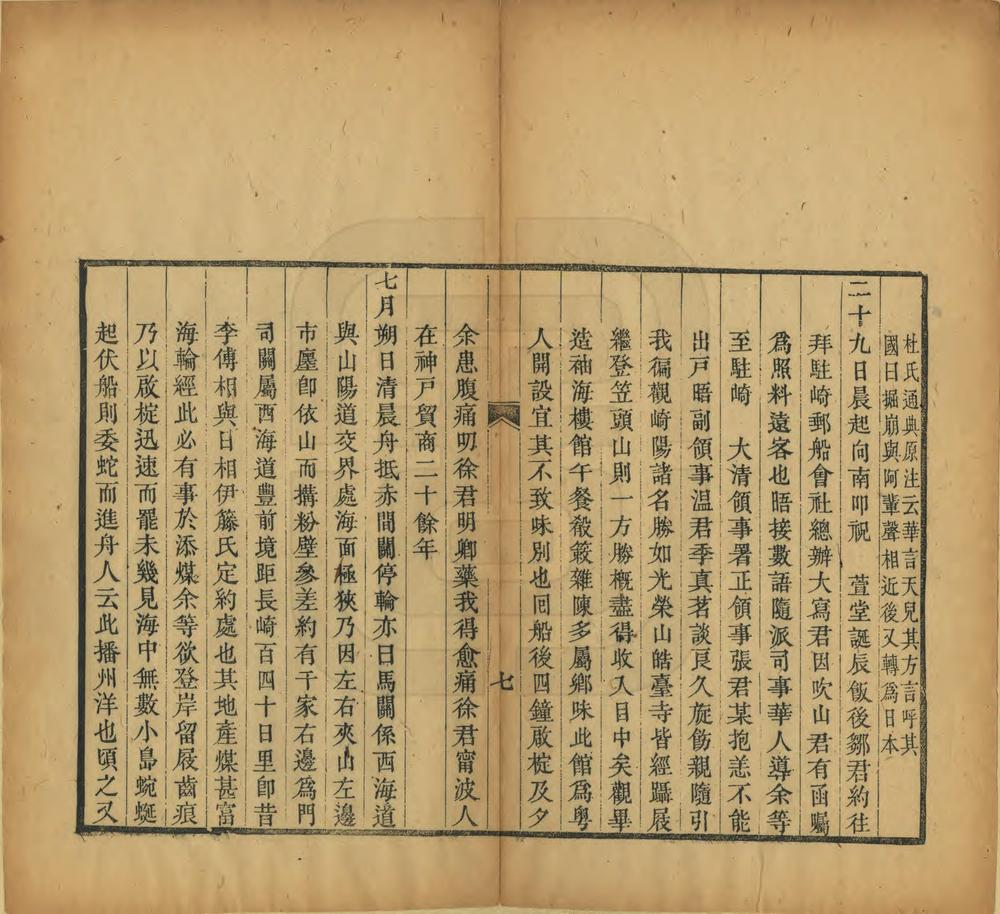 杜氏通典原注云華言天兒其方言呼其
國曰掘崩與阿輩聲相近後又轉爲日本
二十九日晨起向南叩祝　萱堂誕辰飯後鄒君約往
拜駐崎郵船會社總辦大寫君因吹山君有函囑
爲照料遠客也晤接數語隨派司事華人導余等
至駐崎　大清領事署正領事張君某抱恙不能
出戸晤副領事温君季真茗談良久旋飭親隨引
我徧觀崎陽諸名勝如光榮山皓臺寺皆經躡屐
繼登笠頭山則一方勝概盡得收入目中矣觀畢
造袖海樓館午餐殽簌雜陳多屬鄉味此館爲粵
人開設宜其不致味別也回船後四鐘啟椗及夕
余患腹痛叨徐君明卿藥我得愈痛徐君甯波人
在神戸貿商二十餘年
七月朔日清晨舟抵赤間關停輪亦曰馬關係西海道
與山陽道交界處海面極狹乃因左右夾山左邊
市廛卽依山而搆粉壁參差約有千家右邊爲門
司關屬西海道豐前境距長崎百四十日里卽昔
李傅相與日相伊籐氏定約處也其地產煤甚富
海輪經此必有事於添煤余等欲登岸留屐齒痕
乃以啟椗迅速而罷未幾見海中無數小島蜿蜒
起伏船則委蛇而進舟人云此播州洋也頃之又
七